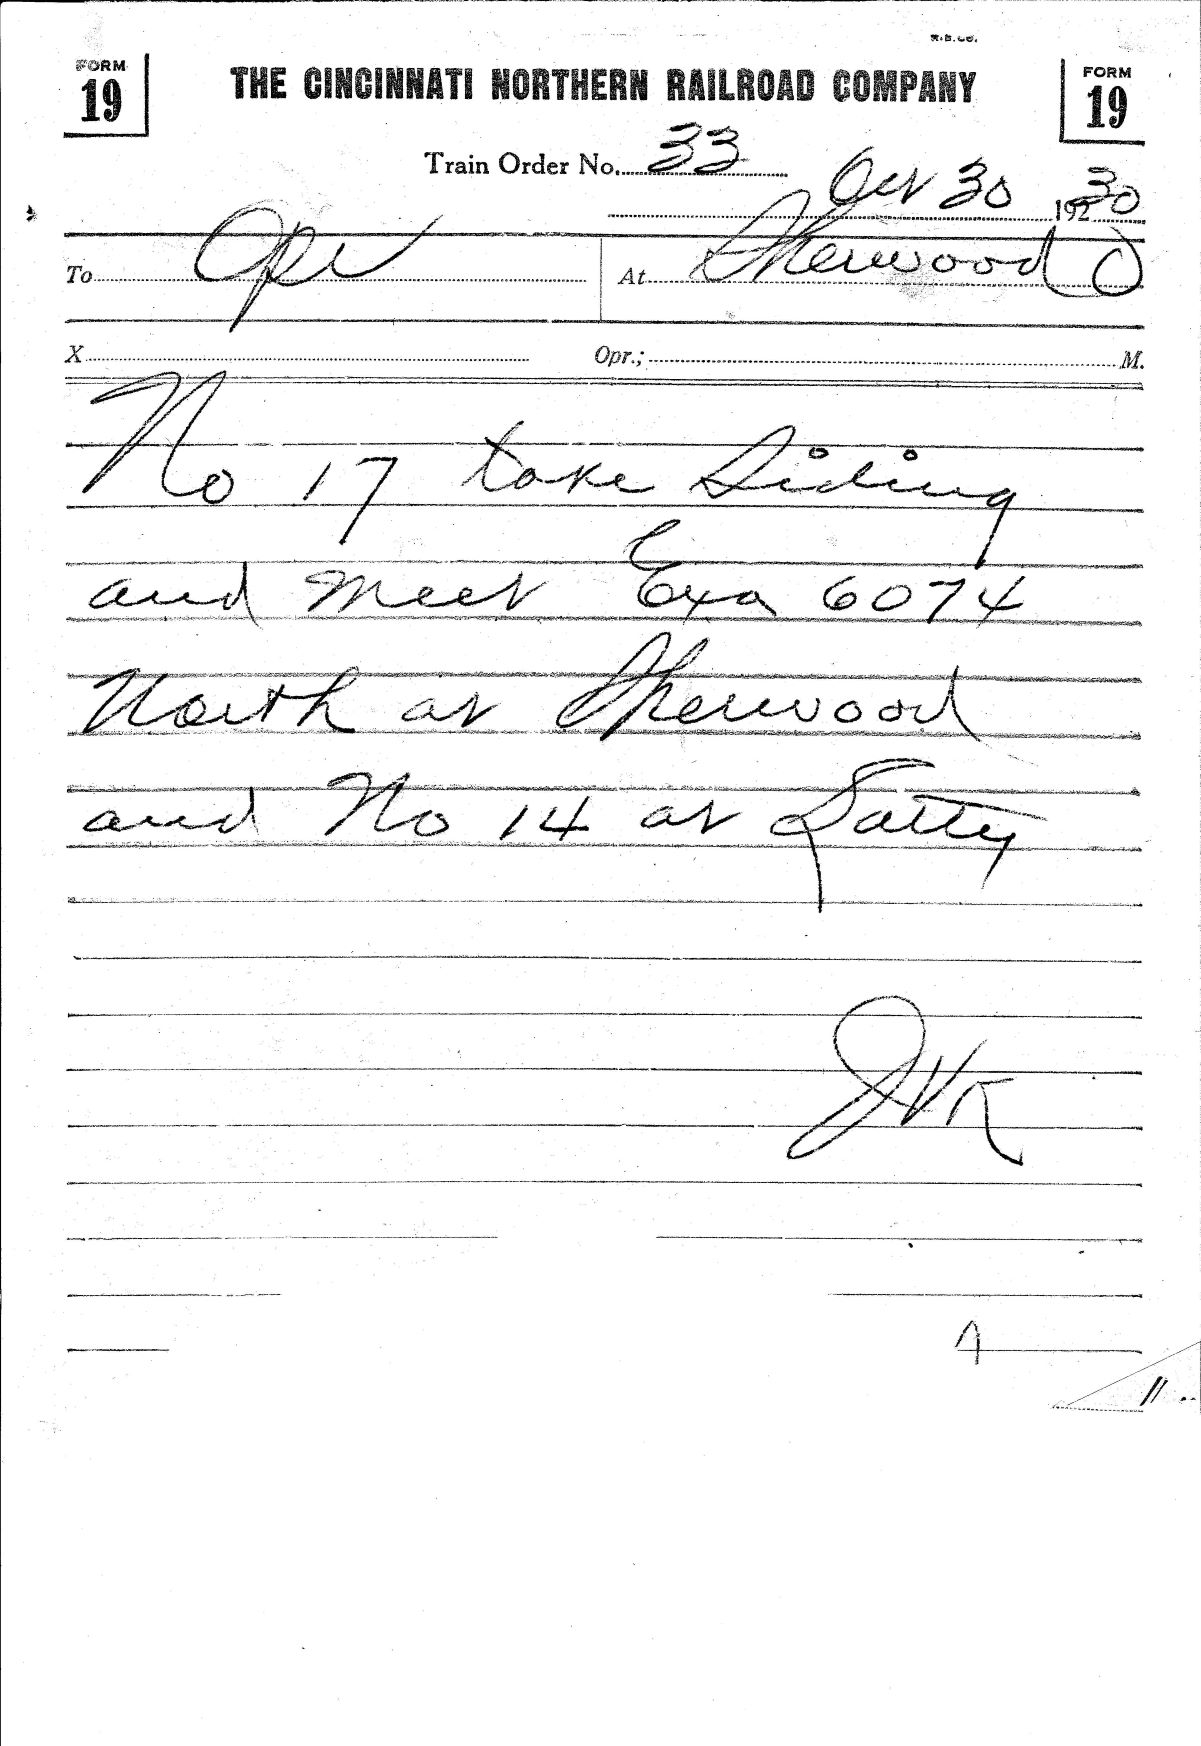 FORM 19
THE CINCINNATI NORTHERN RAILROAD COMPANY
FORM 19
Train Order No. 33
Oct 30 192 30
To Opr At Sherwood O
X Opr.; M.
No 17 take siding
and meet Exa 6074
North at Sherwood
and No 14 at Latty
JVK